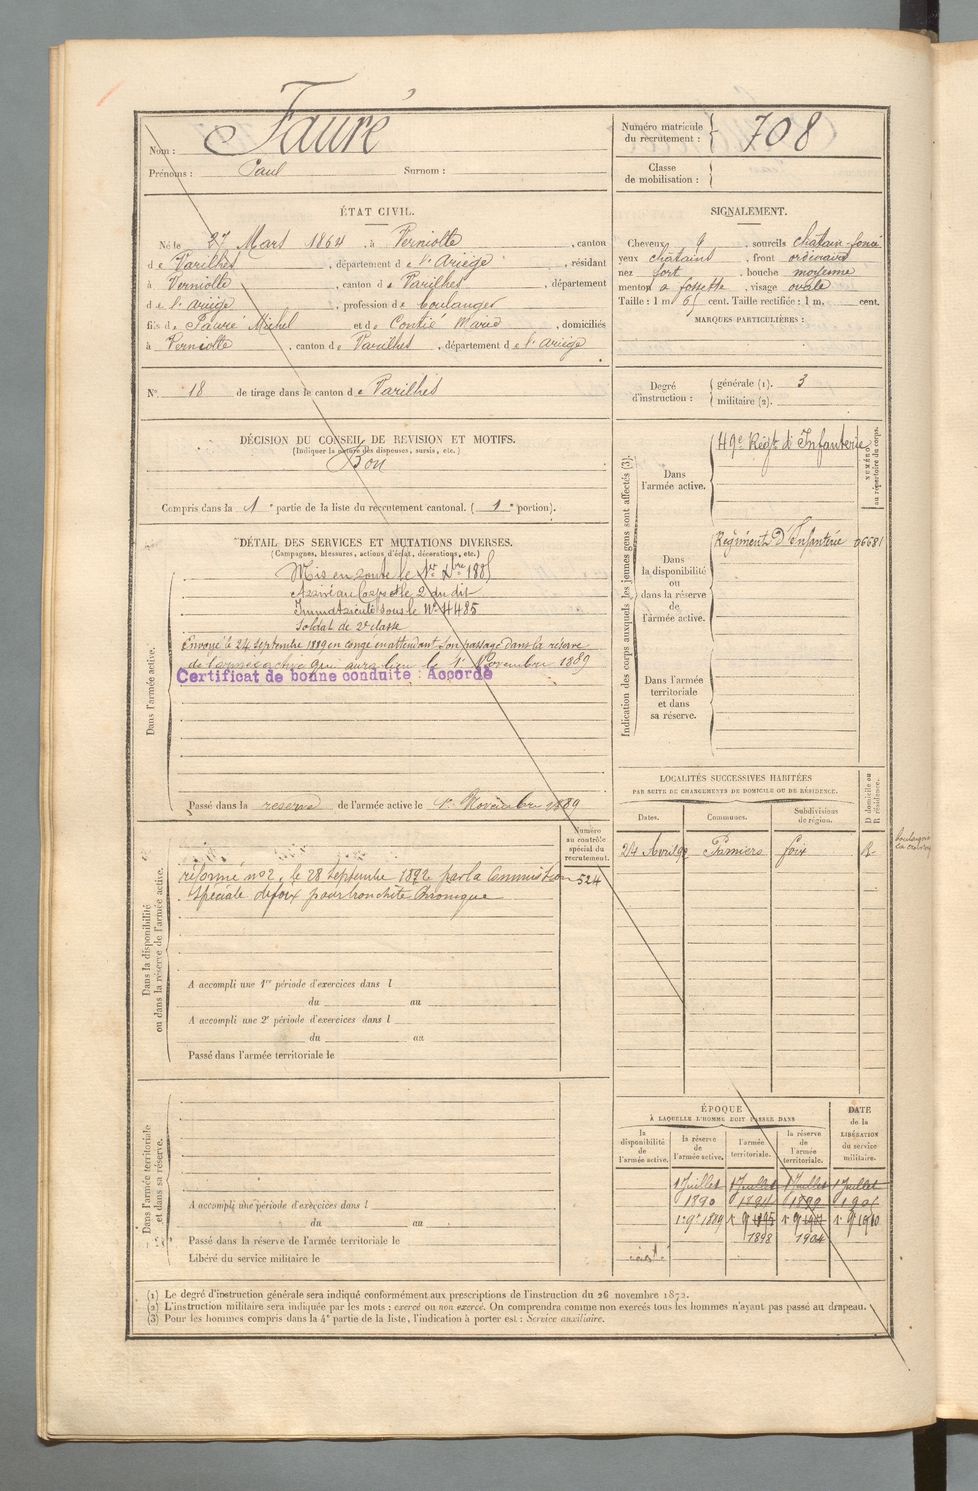 Nom : Fauré
Prénoms : Paul Surnom :
Numéro matricule du recrutement : 708
Classe de mobilisation :
ÉTAT CIVIL.
Né le 27 Mars 1864, à Verniolle, canton
de Varilhes, département de l'Ariège, résidant
à Verniolle, canton de Varilhes, département
de l'Ariège, profession de boulanger
fils de Fauré Michel et de Marie, domiciliés
à Verniolle, canton de Varilhes, département de l'Ariège
N° 18 de tirage dans le canton de Varilhes
SIGNALEMENT.
Cheveux, sourcils châtain-foncé
yeux châtains, front ordinaire
nez fort, bouche moyenne
menton a fossette, visage ovale
Taille : 1 m. 65 cent. Taille rectifiée : 1 m. cent.
MARQUES PARTICULIÈRES :
Degré d'instruction : générale (1). 3
militaire (2).
DÉCISION DU CONSEIL DE REVISION ET MOTIFS.
(Indiquer la nature des dispenses, sursis, etc.)
Bon
Compris dans la 1e partie de la liste du recrutement cantonal. (1e portion).
DÉTAIL DES SERVICES ET MUTATIONS DIVERSES.
(Campagnes, blessures, actions d'éclat, décorations, etc.)
Dans l'armée active.
Mis en route le 1er Xbre 1885
Arrivé au Corps et le 2 du dit
Immatriculé sous le N° 4485
Soldat de 2e classe
Envoyé le 24 septembre 1889 en congé en attendant son passage dans la réserve
de l'armée active qui aura lieu le 1er Novembre 1889
Certificat de bonne conduite : Accordé
Passé dans la reserve de l'armée active le 1er Novembre 1889
Indication des corps auxquels les jeunes gens sont affectés (3).
Dans l'armée active.
49e Régt d'Infanterie
NUMÉRO au répertoire du corps.
Dans la disponibilité ou dans la réserve de l'armée active.
Régiment d'Infanterie 06681
Dans l'armée territoriale et dans sa réserve.
LOCALITÉS SUCCESSIVES HABITÉES
PAR SUITE DE CHANGEMENTS DE DOMICILE OU DE RÉSIDENCE.
Dates. Communes. Subdivisions de région. D domicile ou R résidence.
24 Avril 90 Pamiers foix R
Dans la disponibilité ou dans la réserve de l'armée active.
Numéro au contrôle spécial du recrutement.
524
réformé n° 2, le 28 Septembre 1892 par la Commission
Spéciale de foix pour bronchite chronique
A accompli une 1re période d'exercices dans l
du au
A accompli une 2e période d'exercices dans l
du au
Passé dans l'armée territoriale le
Dans l'armée territoriale et dans sa réserve.
A accompli une période d'exercices dans l
du au
Passé dans la réserve de l'armée territoriale le
Libéré du service militaire le
ÉPOQUE
À LAQUELLE L'HOMME DOIT PASSER DANS
DATE de la LIBÉRATION du service militaire.
la disponibilité de l'armée active. la réserve de l'armée active. l'armée territoriale. la réserve de l'armée territoriale.
1 Juillet 1 Juillet 1 Juillet 1 Juillet
1890 1894 1899 1905
1er 9bre 1889 1er 9bre 1895 1er 9bre 1901 1er 9bre 1910
1898 1904
(1) Le degré d'instruction générale sera indiqué conformément aux prescriptions de l'instruction du 26 novembre 1872.
(2) L'instruction militaire sera indiquée par les mots : exercé ou non exercé. On comprendra comme non exercés tous les hommes n'ayant pas passé au drapeau.
(3) Pour les hommes compris dans la 4e partie de la liste, l'indication à porter est : Service auxiliaire.